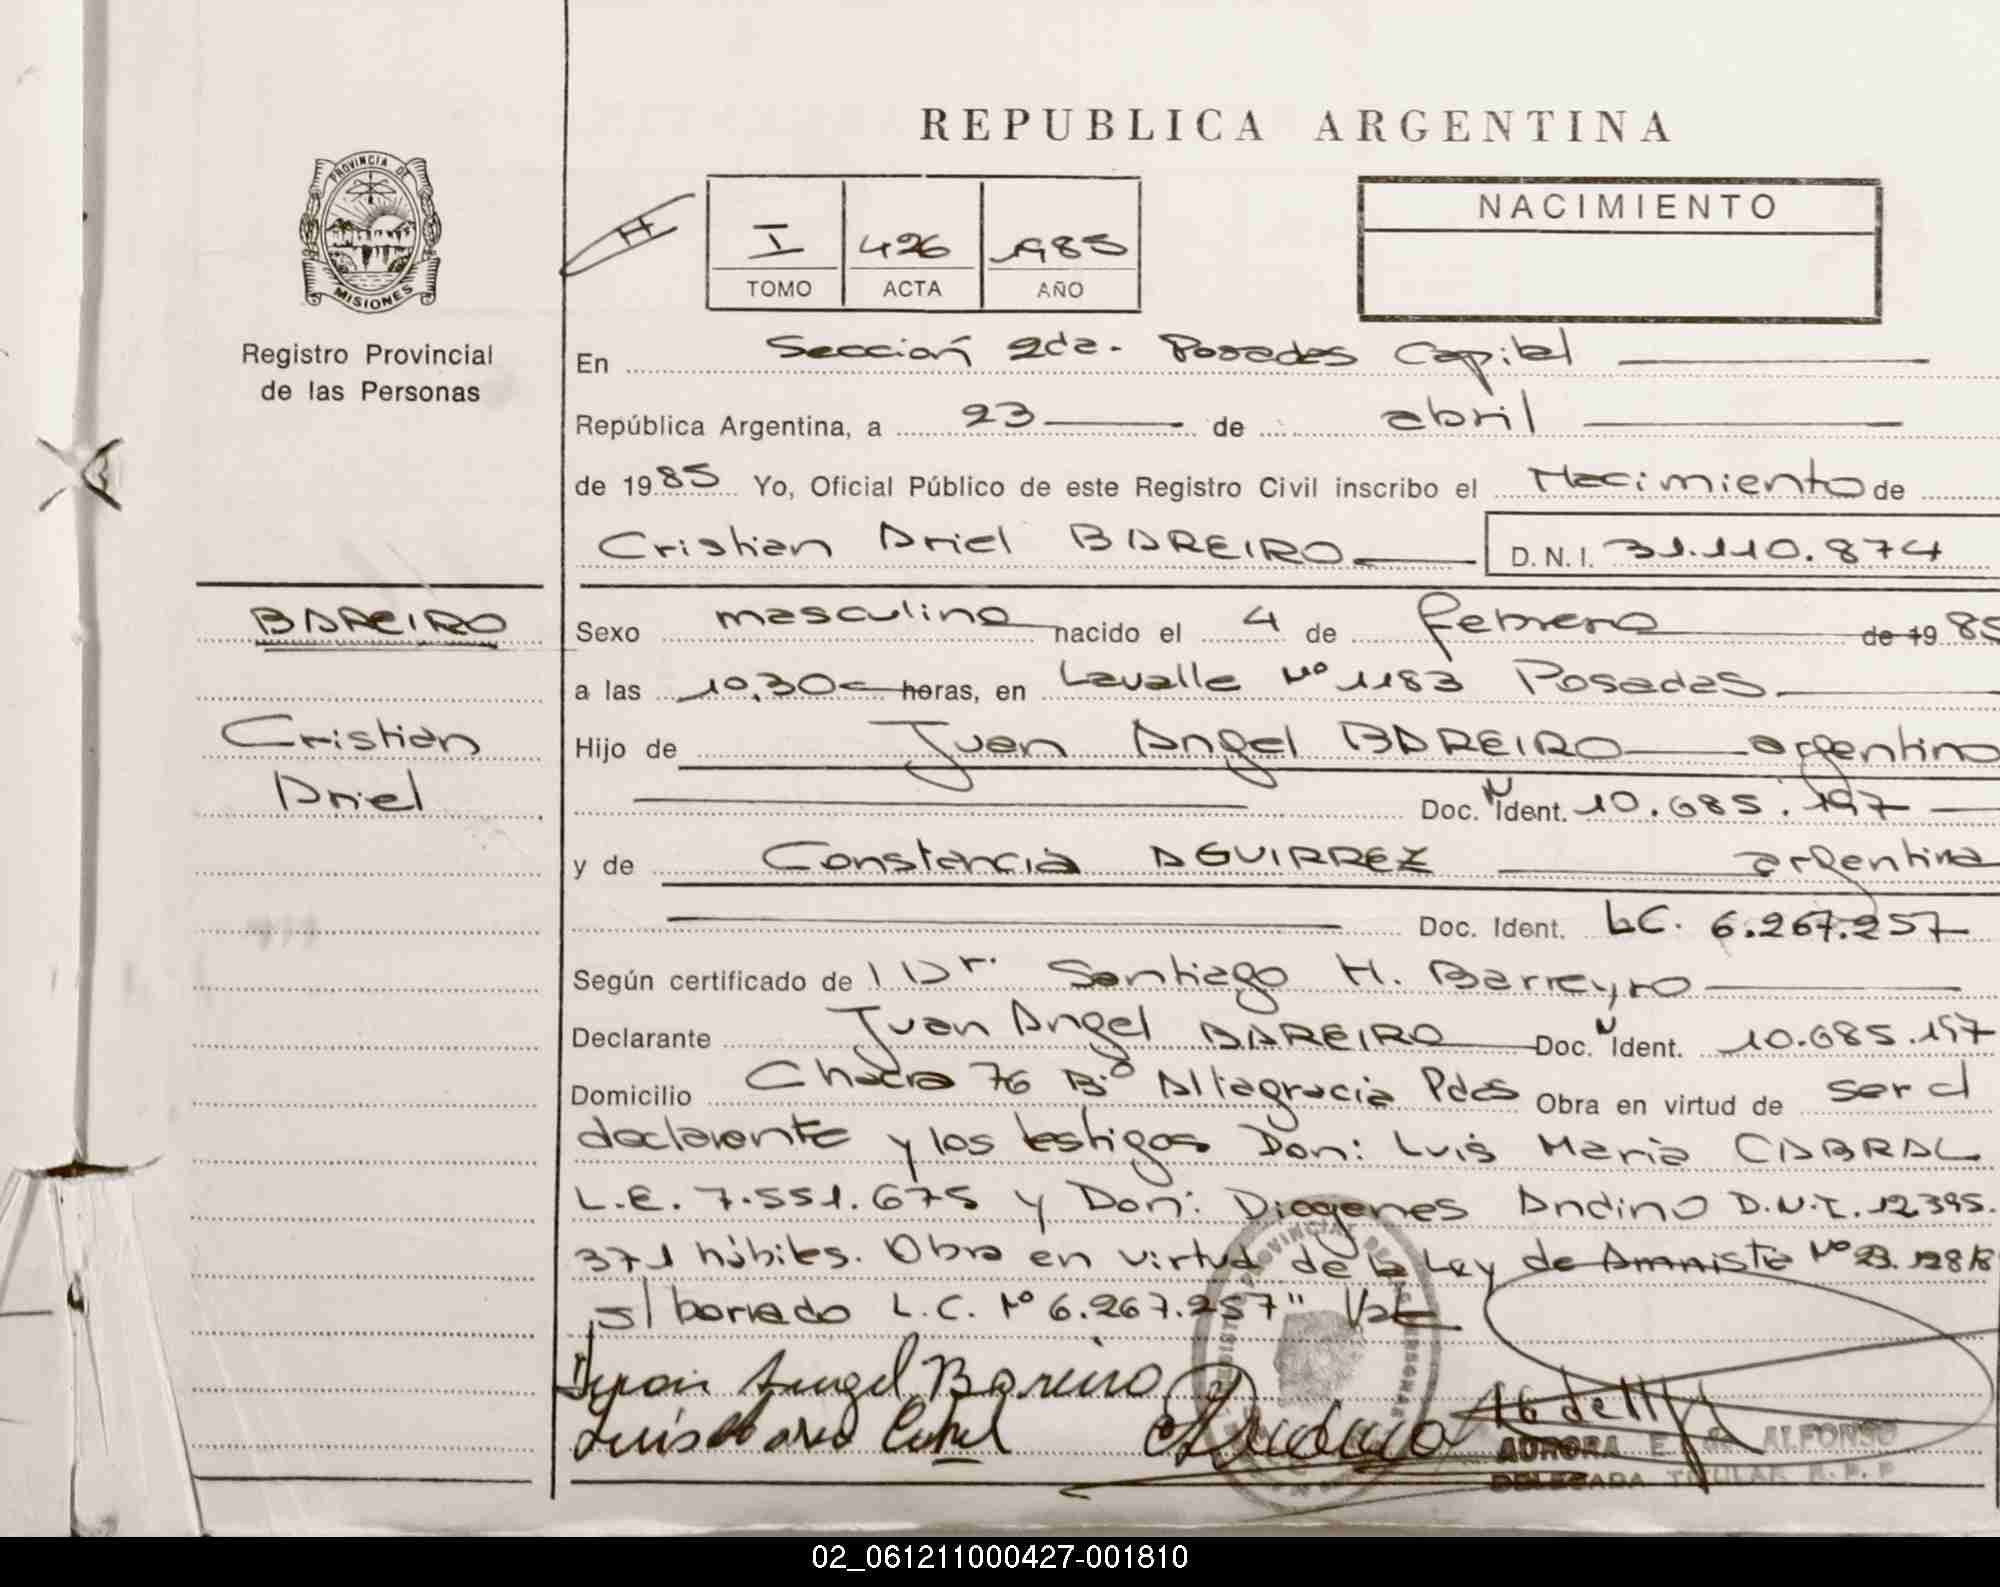 REPUBLICA ARGENTINA
PROVINCIA DE
MISIONES
Registro Provincial
de las Personas
I 426 1985
TOMO ACTA AÑO
NACIMIENTO
En Sección 2da. Posadas Capital
República Argentina, a 23 de abril
de 1985 Yo, Oficial Público de este Registro Civil inscribo el Nacimiento de
Cristian Ariel BAREIRO D.N.I. 31.110.874
BAREIRO
Cristian
Ariel
Sexo masculino nacido el 4 de febrero de 1985
a las 10,30 horas, en Lavalle Nº 1183 Posadas
Hijo de Juan Angel BAREIRO argentino
Doc. N Ident. 10.685.197
y de Constancia AGUIRREZ argentina
Doc. Ident. LC. 6.267.257
Según certificado del Dr. Santiago H. Barreyro
Declarante Juan Angel BAREIRO Doc. N Ident. 10.685.197
Domicilio Chacra 76 Bº Altagracia Pdas Obra en virtud de ser el
declarante y los testigos Don: Luis Maria CABRAL
L.E. 7.551.675 y Don: Diogenes Andino D.N.I. 12.395.
371 hábiles. Obra en virtud de la Ley de Amnistia Nº 23.128
s/ borrado L.C. Nº 6.267.257" Vale
Juan Angel Bareiro
Luis Maria Cabral
Andino
AURORA E. de ALFONSO
DELEGADA TITULAR R.P.P
02_061211000427-001810